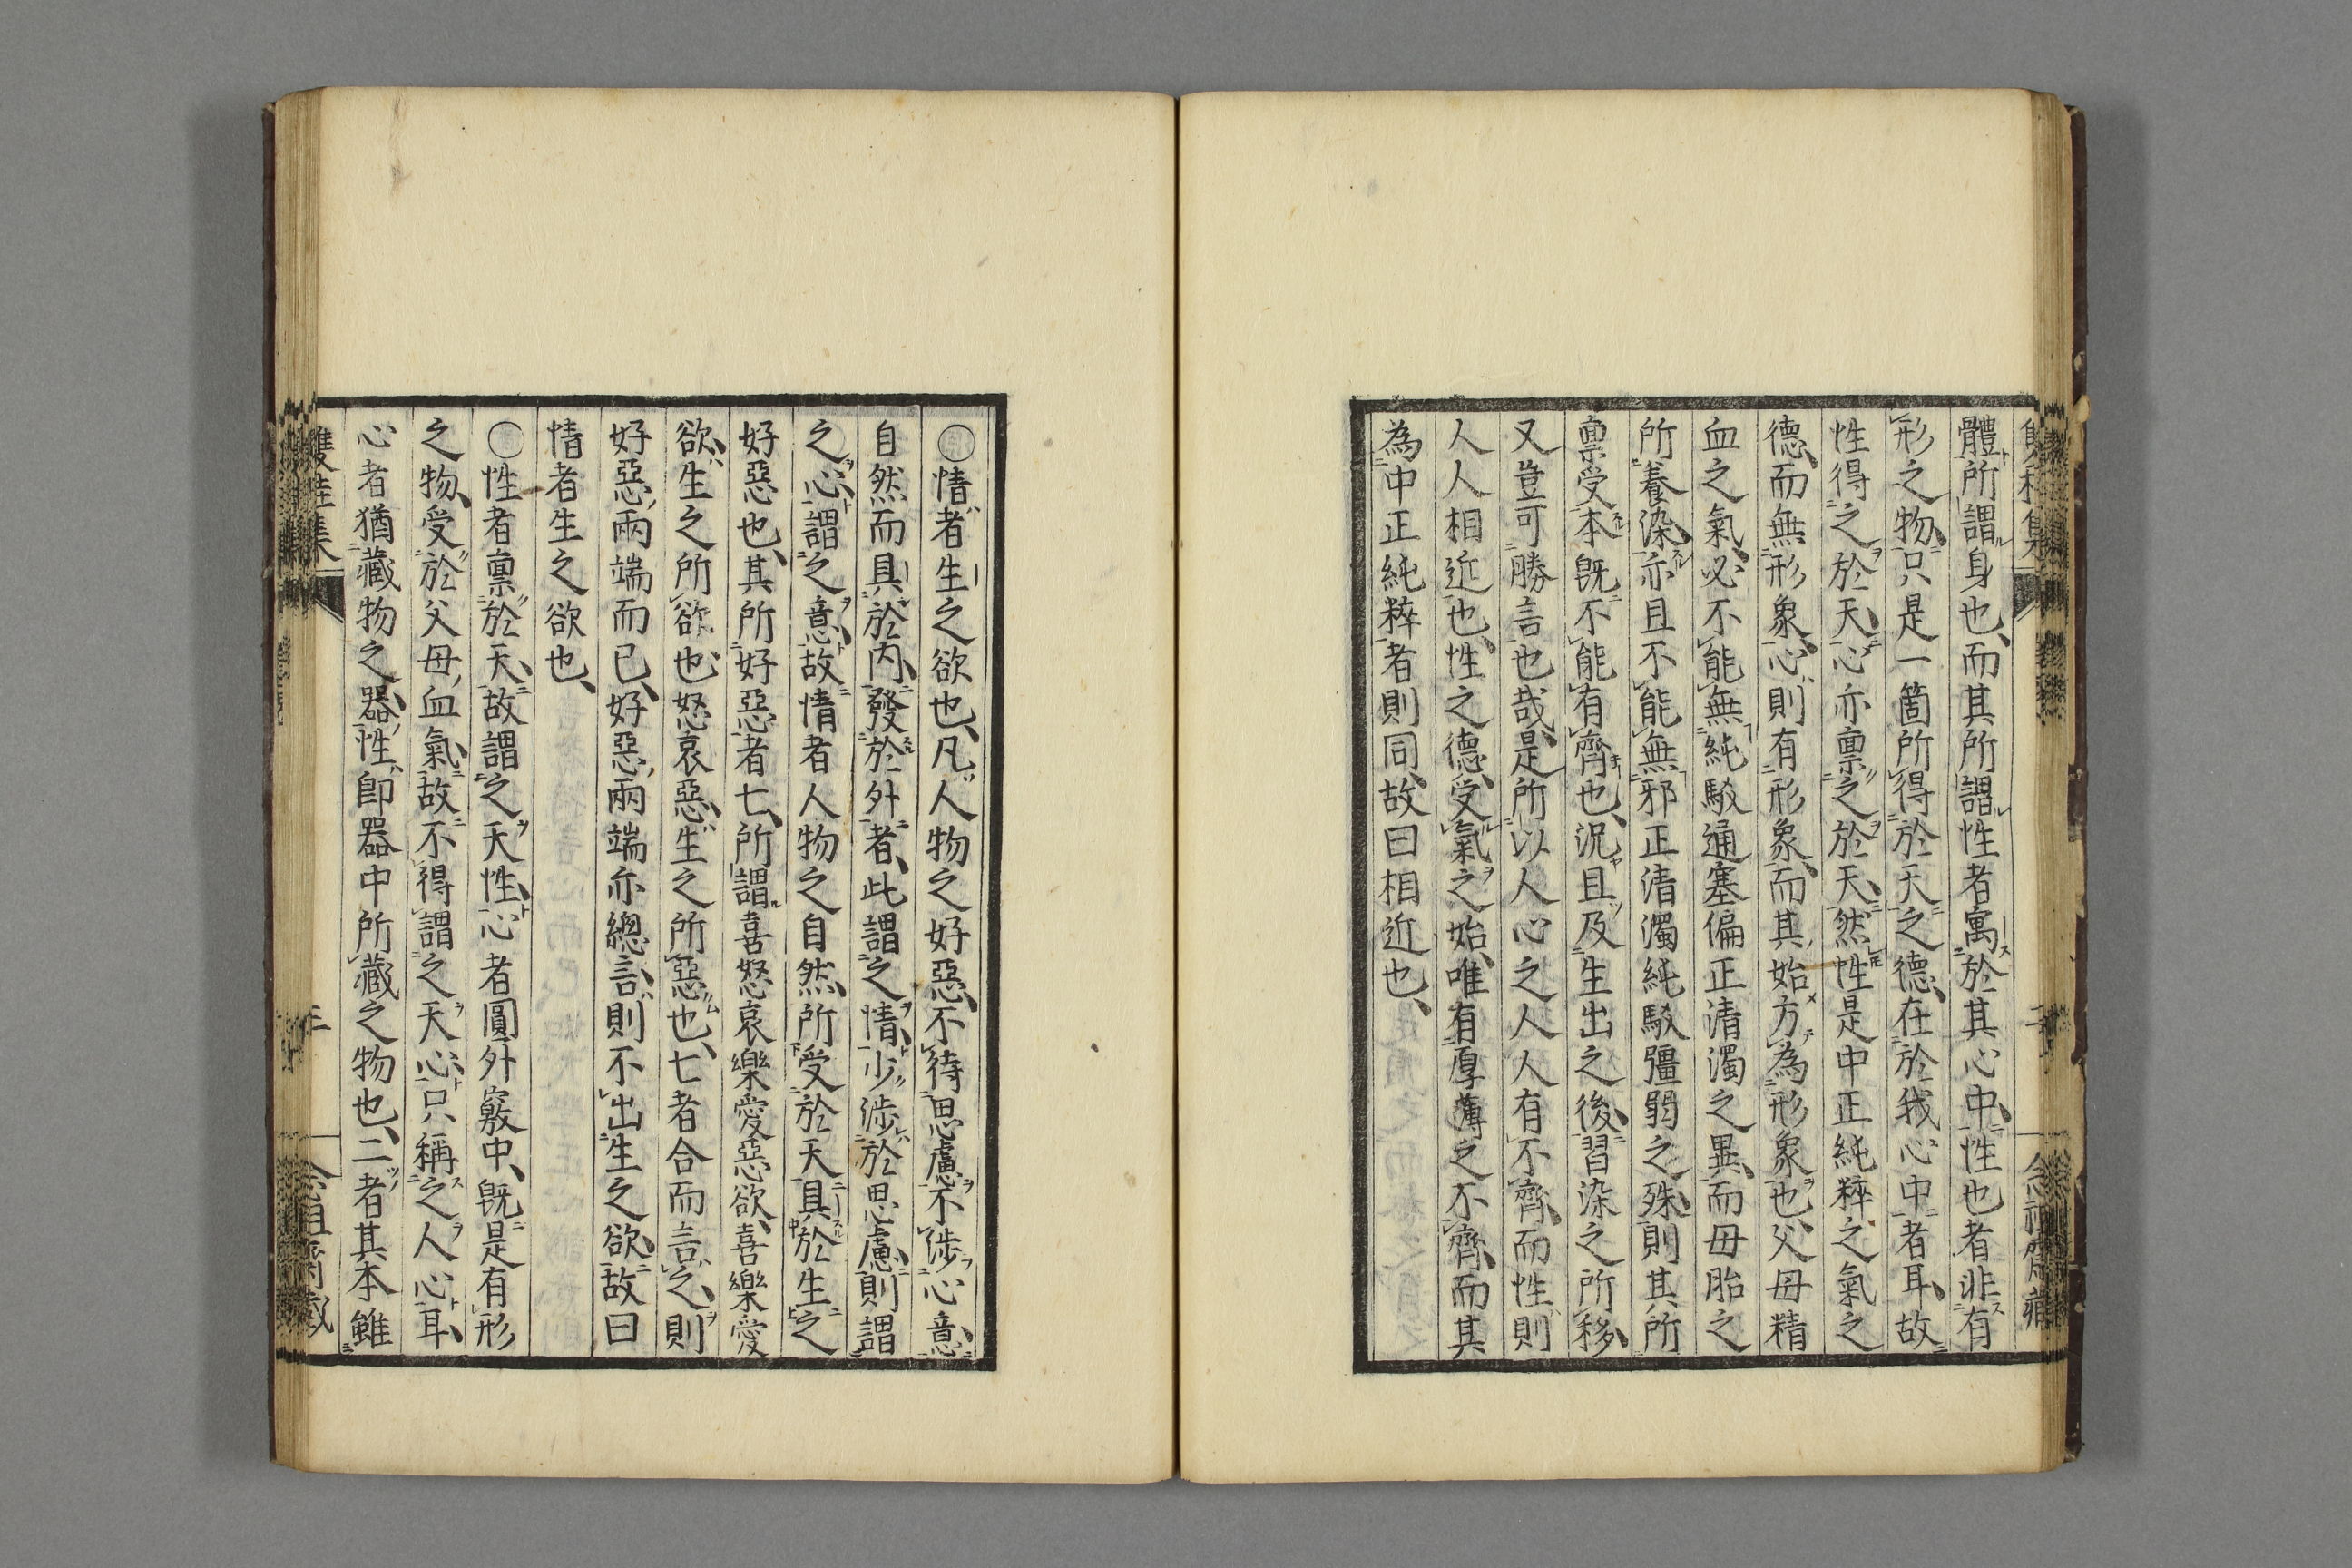 體所謂身也、而其所謂性者寓於其心中、性也者非有
形之物、只是一箇所得於天之德、在於我心中者耳、故
性得之於天、心亦稟之於天、然性是中正純粹之氣之
德、而無形象、心則有形象、而其始方為形象也、父母精
血之氣、必不能無純駁通塞偏正清濁之異、而母胎之
所養染、亦且不能無邪正清濁純駁彊弱之殊、則其所
稟受本既不能有齊也、況且及生出之後、習染之所移、
又豈可勝言也哉、是所以人心之人人有不齊、而性則
人人相近也、性之德、受氣之始、唯有厚薄之不齊、而其
為中正純粹者則同、故曰相近也、
○情者生之欲也、凡人物之好惡、不待思慮、不涉心意、
自然而具於內、發於外者、此謂之情、少涉於思慮、則謂
之心、謂之意、故情者人物之自然、所受於天具於生之
好惡也、其所好惡者七、所謂喜怒哀樂愛惡欲、喜樂愛
欲、生之所欲也、怒哀惡、生之所惡也、七者合而言之、則
好惡兩端而已、好惡兩端亦總言、則不出生之欲、故曰
情者生之欲也、
○性者稟於天、故謂之天性、心者圓外竅中、既是有形
之物、受於父母血氣、故不得謂之天心、只稱之人心耳、
心者猶藏物之器、性即器中所藏之物也、二者其本雖